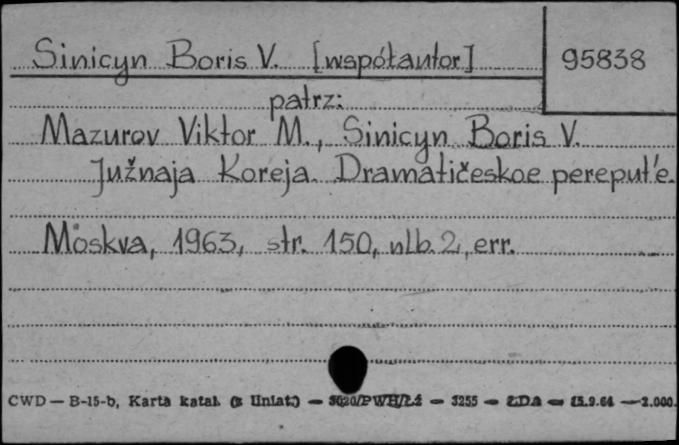 Sinicyn Boris V. [współautor]
95838
patrz:
Mazurov Viktor M., Sinicyn Boris V.
Južnaja Koreja. Dramatičeskoe pereput'e.
Moskva, 1963, str. 150, nlb. 2, err.
CWD — B-15-b, Karta katal. (z Uniat.) — 3020/PWH/Łż — 3255 — ŁDA — 15.9.64 — 2.000.